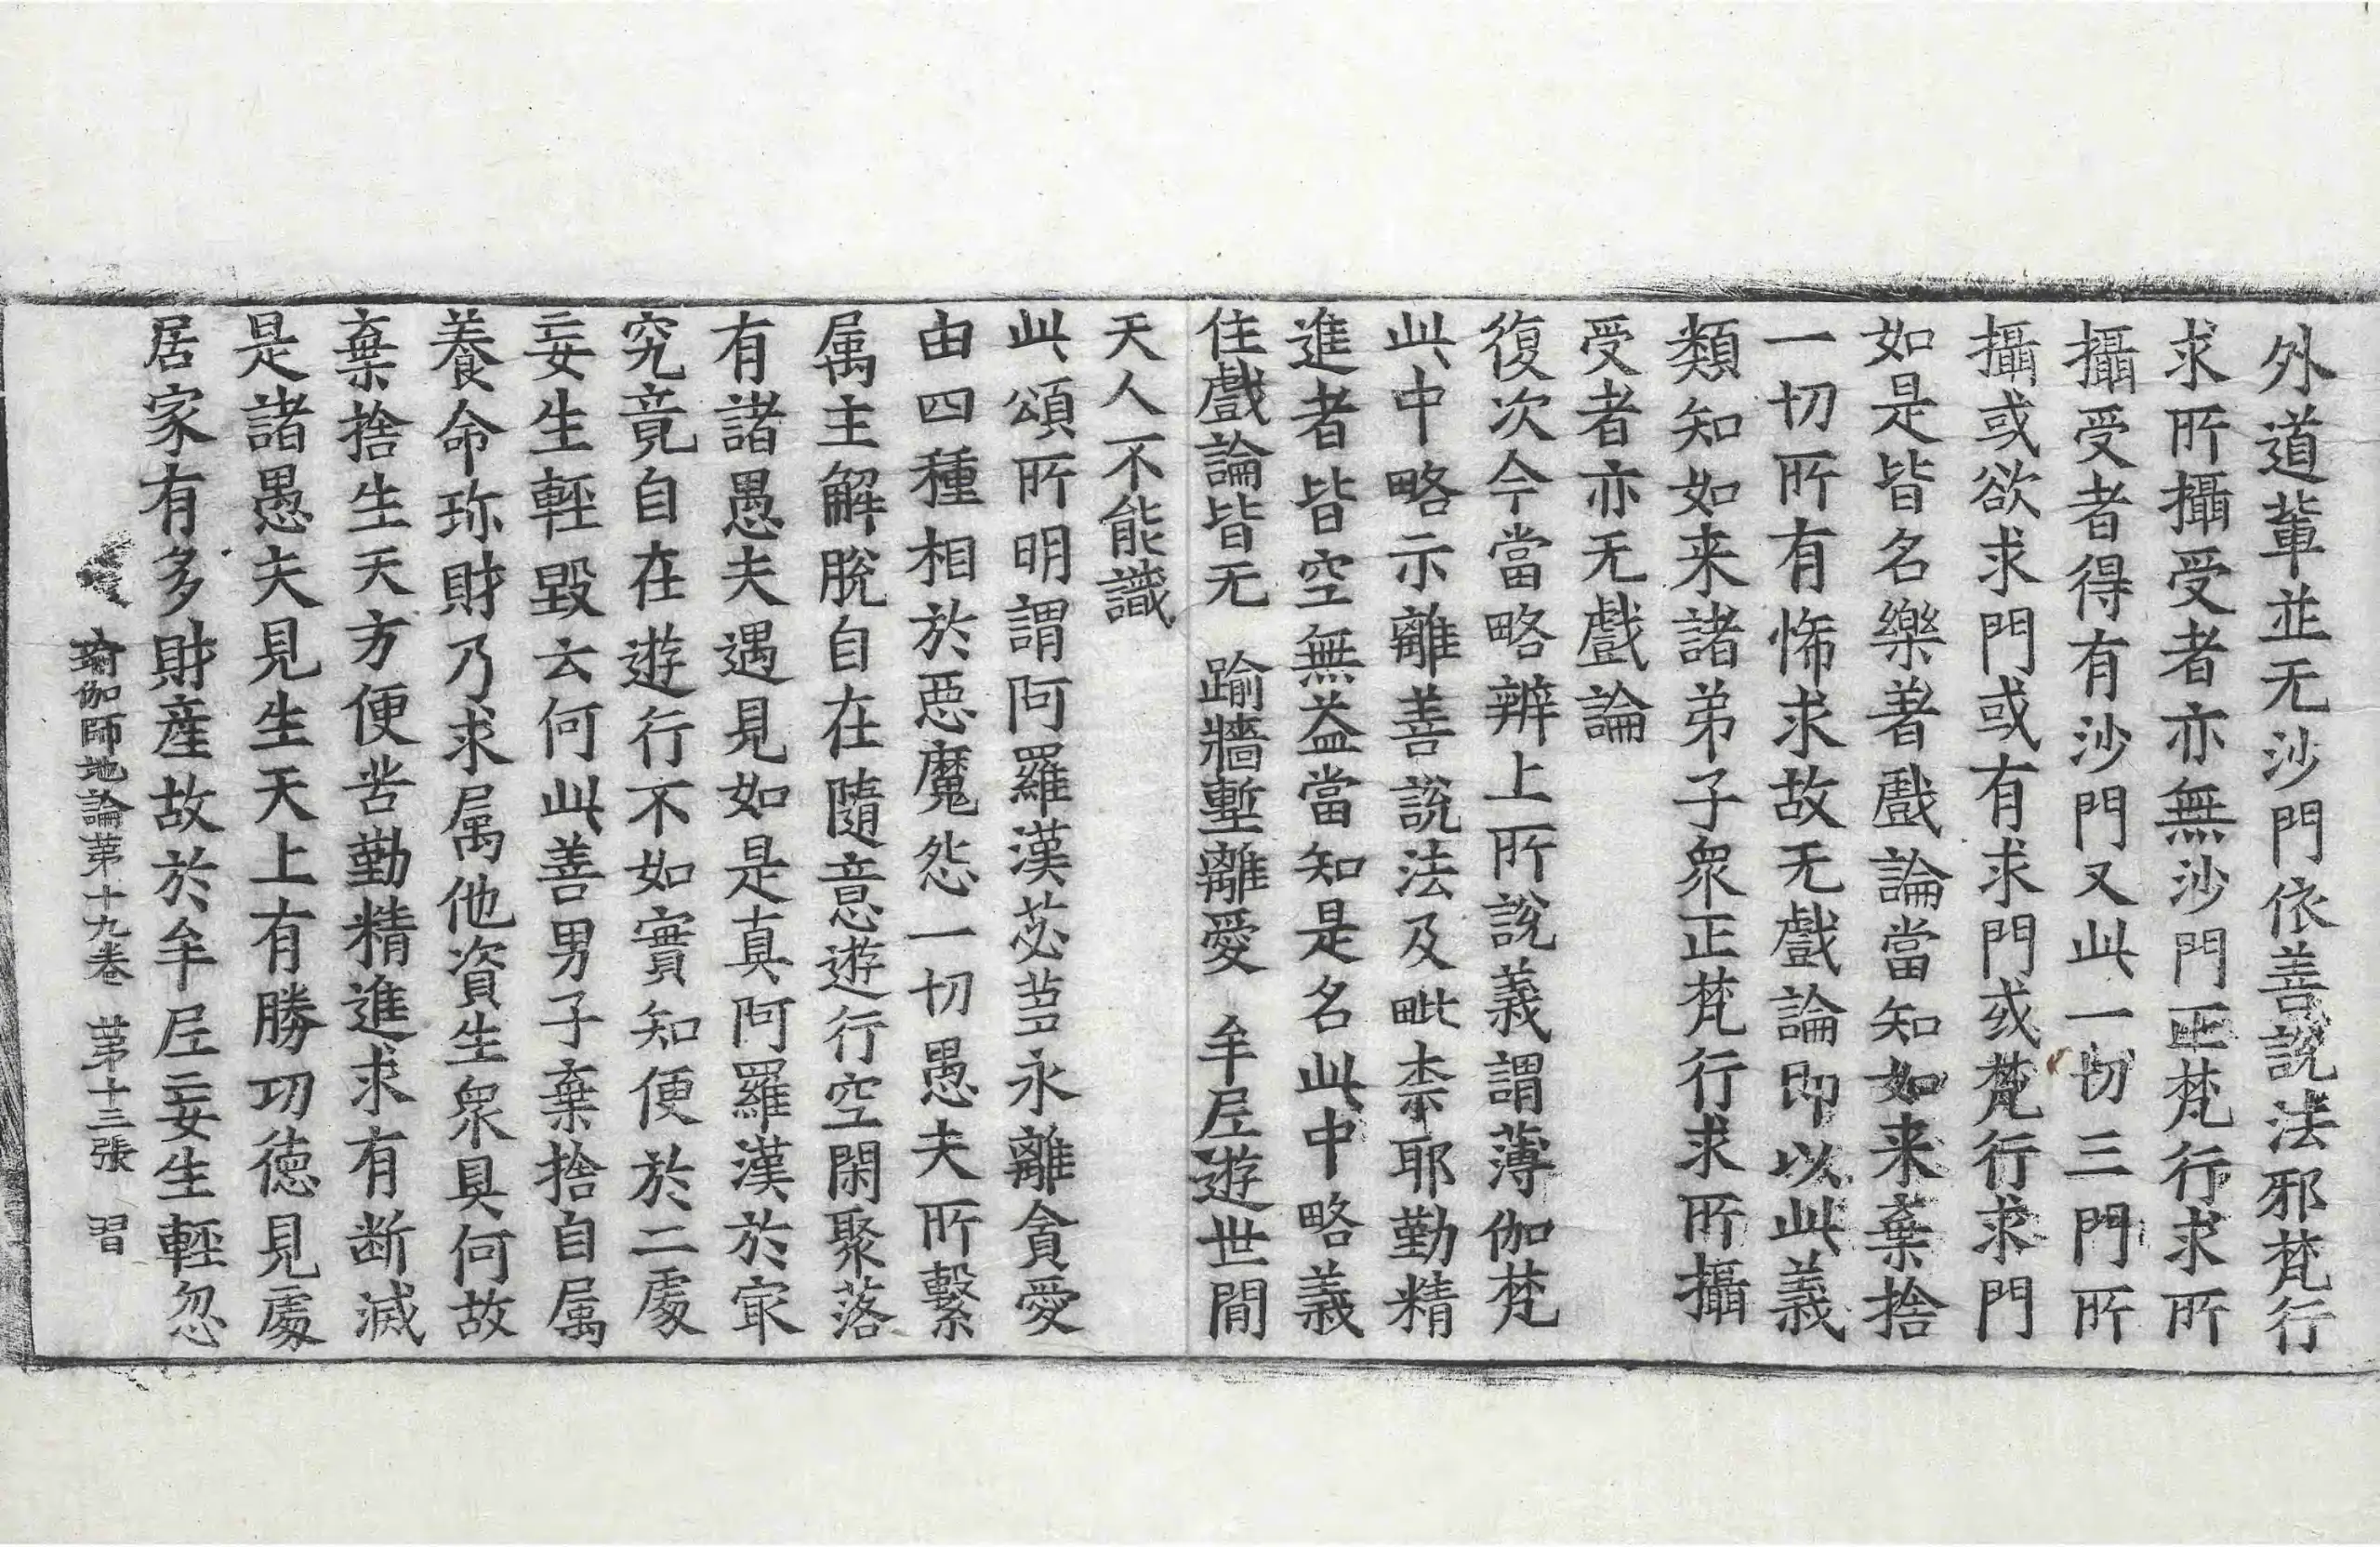 外道輩並无沙門依善說法邪梵行
求所攝受者亦無沙門正梵行求所
攝受者得有沙門又此一切三門所
攝或欲求門或有求門或梵行求門
如是皆名樂著戲論當知如来棄捨
一切所有怖求故无戲論即以此義
類知如来諸弟子衆正梵行求所攝
受者亦无戲論
復次今當略辨上所說義謂薄伽梵
此中略示離善說法及毗柰耶勤精
進者皆空無益當知是名此中略義
住戲論皆无　踰牆塹離愛　牟尼遊世間
天人不能識
此頌所明謂阿羅漢苾蒭永離貪愛
由四種相於惡魔怨一切愚夫所繫
属主解脫自在隨意遊行空閑聚落
有諸愚夫遇見如是真阿羅漢於㝡
究竟自在遊行不如實知便於二處
妄生輕毀云何此善男子棄捨自属
養命珎財乃求属他資生衆具何故
棄捨生天方便苦勤精進求有断滅
是諸愚夫見生天上有勝功德見處
居家有多財産故於牟尼妄生輕忽
瑜伽師地論第十九卷　第十三張　習